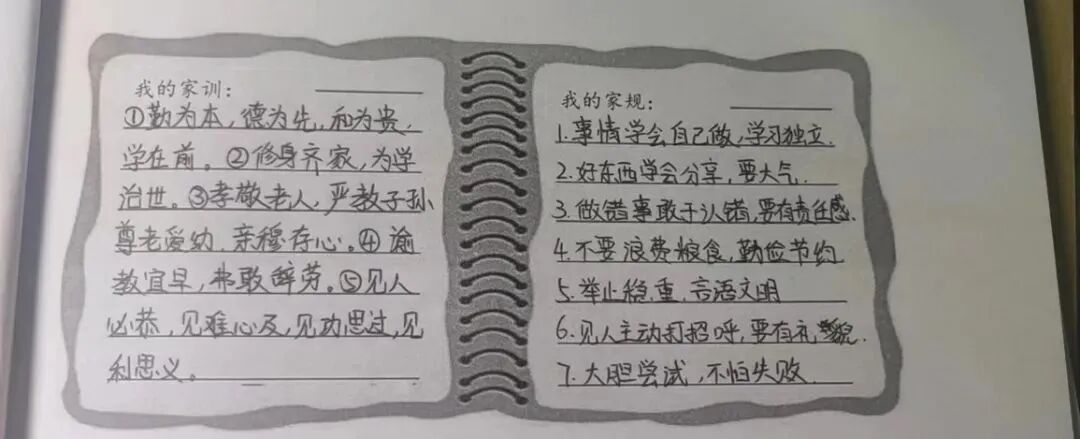 我的家训:
①勤为本,德为先,和为贵,
学在前。②修身齐家,为学
治世。③孝敬老人,严教子孙
尊老爱幼,亲穆存心。④谕
教宜早,弗敢辞劳。⑤见人
必恭,见难心及,见功思过,见
利思义。
我的家规:
1.事情学会自己做,学习独立.
2.好东西学会分享,要大气.
3.做错事敢于认错,要有责任感.
4.不要浪费粮食,勤俭节约
5.举止稳重,言语文明
6.见人主动打招呼,要有礼貌.
7.大胆尝试,不怕失败.